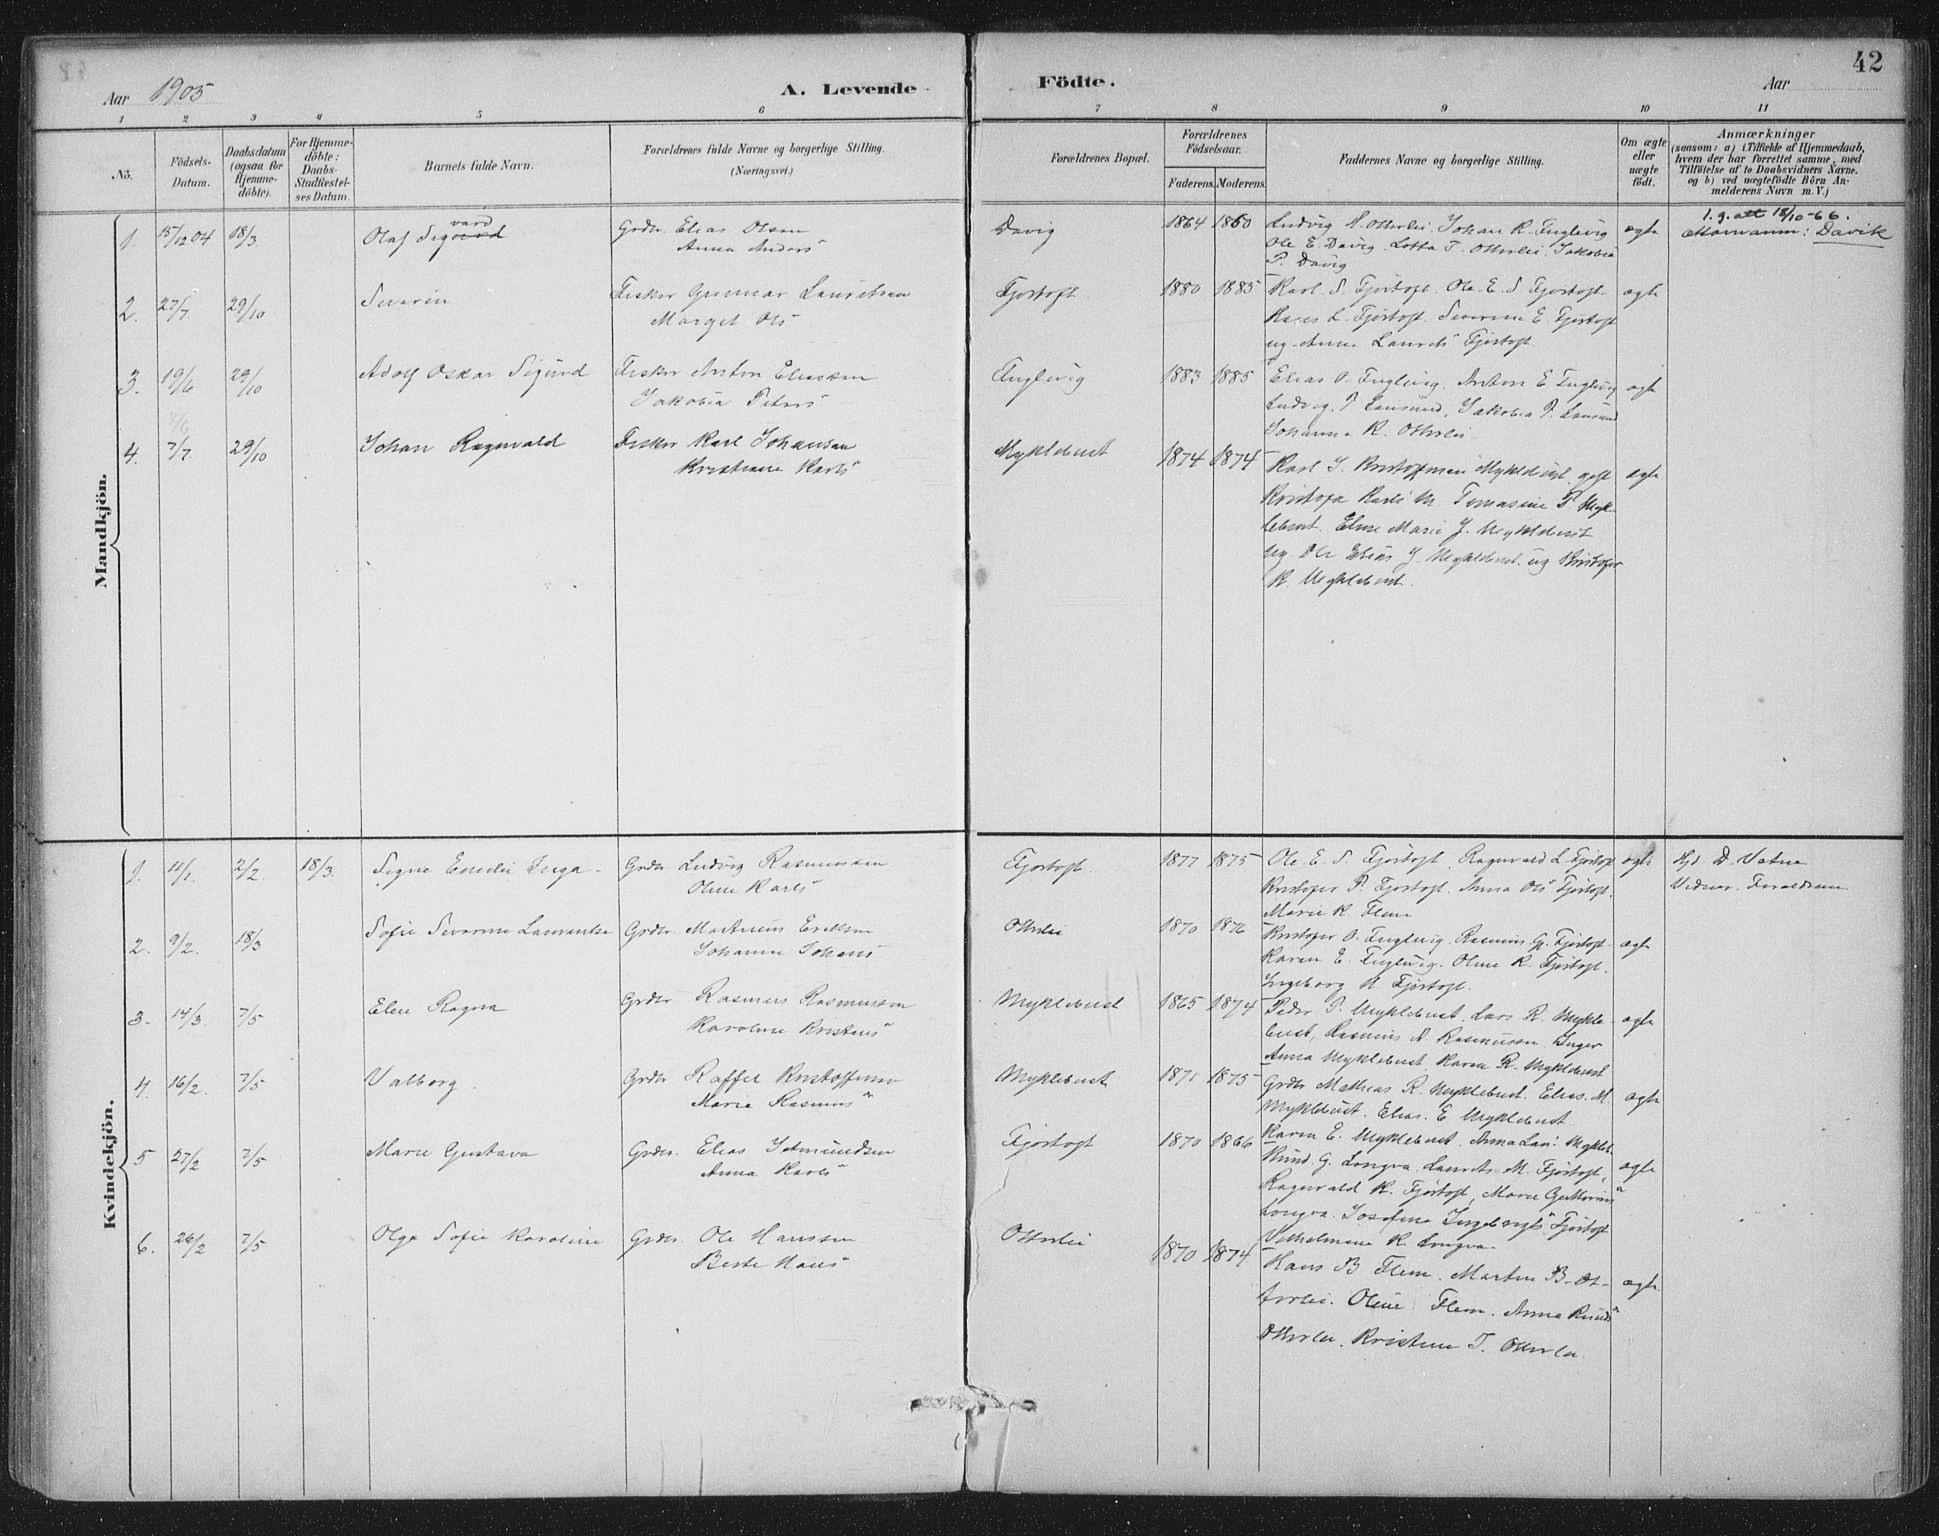 42
Aar 1905
A. Levende
Födte.
Aar
1 2 3 4 5 6 7 8 9 10 11
No.
Födsels-
Datum.
Daabsdatum
(ogsaa for
Hjemme-
döbte).
For Hjemme-
döbte:
Daabs-
Stadfæstel-
ses Datum.
Barnets fulde Navn.
Forældrenes fulde Navne og borgerlige Stilling.
(Næringsvei.)
Forældrenes Bopæl.
Forældrenes
Födselsaar.
Faderens. Moderens.
Faddernes Navne og borgerlige Stilling.
Om ægte
eller
uægte
födt.
Anmærkninger
(saasom: a) i Tilfælde af Hjemmedaab,
hvem der har forrettet samme, med
Tilföielse af to Daabsvidners Navne,
og b) ved uægtefödte Börn An-
melderens Navn m. V.)
Mandkjön.
1. 15/12 04 18/3
Olaf Sigurd
vard
Grdbr Elias Olsen
Anna Anders"
Davig
1864 1860
Ludvig H. Otterlei, Johan R. Fuglevig
Ole E. Davig. Lotta T. Otterlei. Jakobia
P. Davig
ægte
1. g. att 18/10-66.
Mornamn: Davik
2. 27/7 29/10
Severin
Fisker Gunnar Lauritsen
Marget Ols"
Fjørtoft
1880 1885
Karl S. Fjørtoft. Ole E. S. Fjørtoft
L. Fjørtoft. Severine E. Fjørtoft
og Anne Laurits" Fjørtoft.
ægte
3. 19/6 29/10
Adolf Oskar Sigurd
Fisker Anton Eliassen
Jakobia Peters"
Fuglevig
1883 1885
Elias O. Fuglevig. Anton E. Fuglevig
Ludvig P. Lausund, Jakobia P. Lausund
Johanna R. Otterlei
ægte
4. 7/7 29/10
Johan Ragnvald
Fisker Karl Johansen
Kristiane Karls"
Myklebust
1874 1874
Karl J. Kristoffersen Myklebust, gift
Kristofa Karls M. Tomasine P. Mykl-
lebust. Eline Marie J. Myklebust
Ole Elias J. Myklebust. og Kristofer
K. Myklebust.
ægte
Kvindekjön.
1. 11/1. 2/2. 18/3.
Signe Emelie Inga
Grdbr Ludvig Rasmussen
Oline Karls"
Fjørtoft
1877 1875
Ole E. S. Fjørtoft, Ragnvald L. Fjørtoft
Kristofer P. Fjørtoft. Anna Ols" Fjørtoft.
Marie K. Flem
ægte
Hjd. D. Vatne
Vidner. Forældrene
2. 9/2. 18/3
Sofie Severine Laurentse
Grdbr. Martinus Eriksen
Johanne Johans"
Otterlei
1870 1876
Kristofer O. Fuglevig. Rasmus G. Fjørtoft
Karen E. Fuglevig. Oline R. Fjørtoft.
Ingeborg R. Fjørtoft.
ægte
3. 14/3. 7/5
Eline Ragna
Grdbr Rasmus Rasmussen
Karoline Kristens"
Myklebust
1865 1874
Peder P. Myklebust. Lars R. Mykle-
bust, Rasmus A. Rasmussen. Inger
Anna Myklebust. Karen R. Myklebust
ægte
4. 16/2. 7/5
Valborg.
Grdbr Raffel Kristoffersen
Marie Rasmus"
Myklebust
1871 1875
Grdbr Mathias R. Myklebust. Elias. M.
Myklebust. Elias. E. Myklebust
Karen E. Myklebust. Anna Lars" Mykleb.
ægte
5 27/2 7/5
Marie Gustava
Grdbr. Elias Jetmundsen
Anna Karls"
Fjørtoft
1870 1866
Knud G. Longva. Laurits M. Fjørtoft,
Ragnvald K. Fjørtoft, Marie
Longva. Josefine Ingebrigts" Fjørtoft
Vilhelmine K. Longva.
ægte
6. 26/2 7/5
Olga Sofie Karoline
Grdbr. Ole Hanssen
Berte Hans"
Otterlei
1870 1874
Hans B Flem. Martin B. Ot-
terlei. Oline Flem. Anna Knuds"
Otterlei. Kristine T. Otterlei
ægte